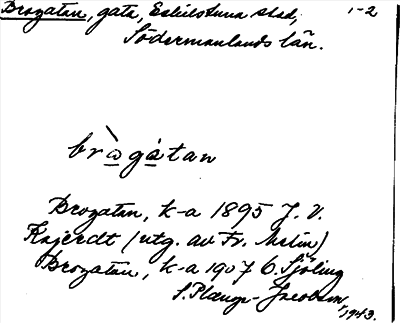 Brogatan, gata, Eskilstuna stad, 1-2
Södermanlands län.
brògàtan
Brogatan, k-a 1895 J. V.
(utg. av Fr. Melin)
Brogatan, k-a 1907 C. Sjöling
S. Plænge-Jacobson, 1943.